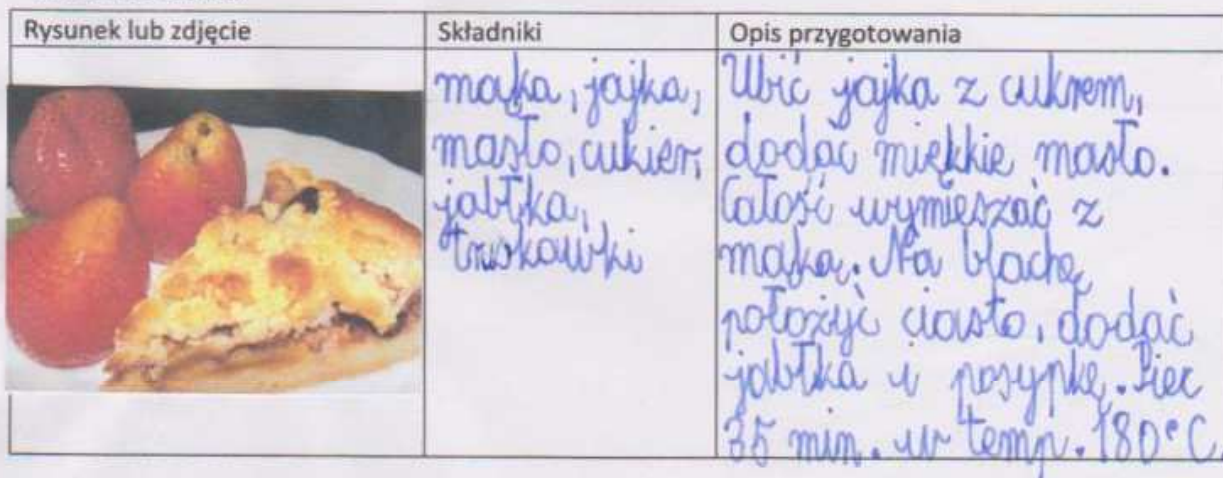 Rysunek lub zdjęcie
Składniki
Opis przygotowania
mąka, jajka,
masło, cukier,
jabłka,
truskawki
Ubić jajka z cukrem,
dodać miękkie masło.
Całość wymieszać z
mąką. Na blachę
położyć ciasto, dodać
jabłka i posypkę. Piec
35 min. w temp. 180°C.